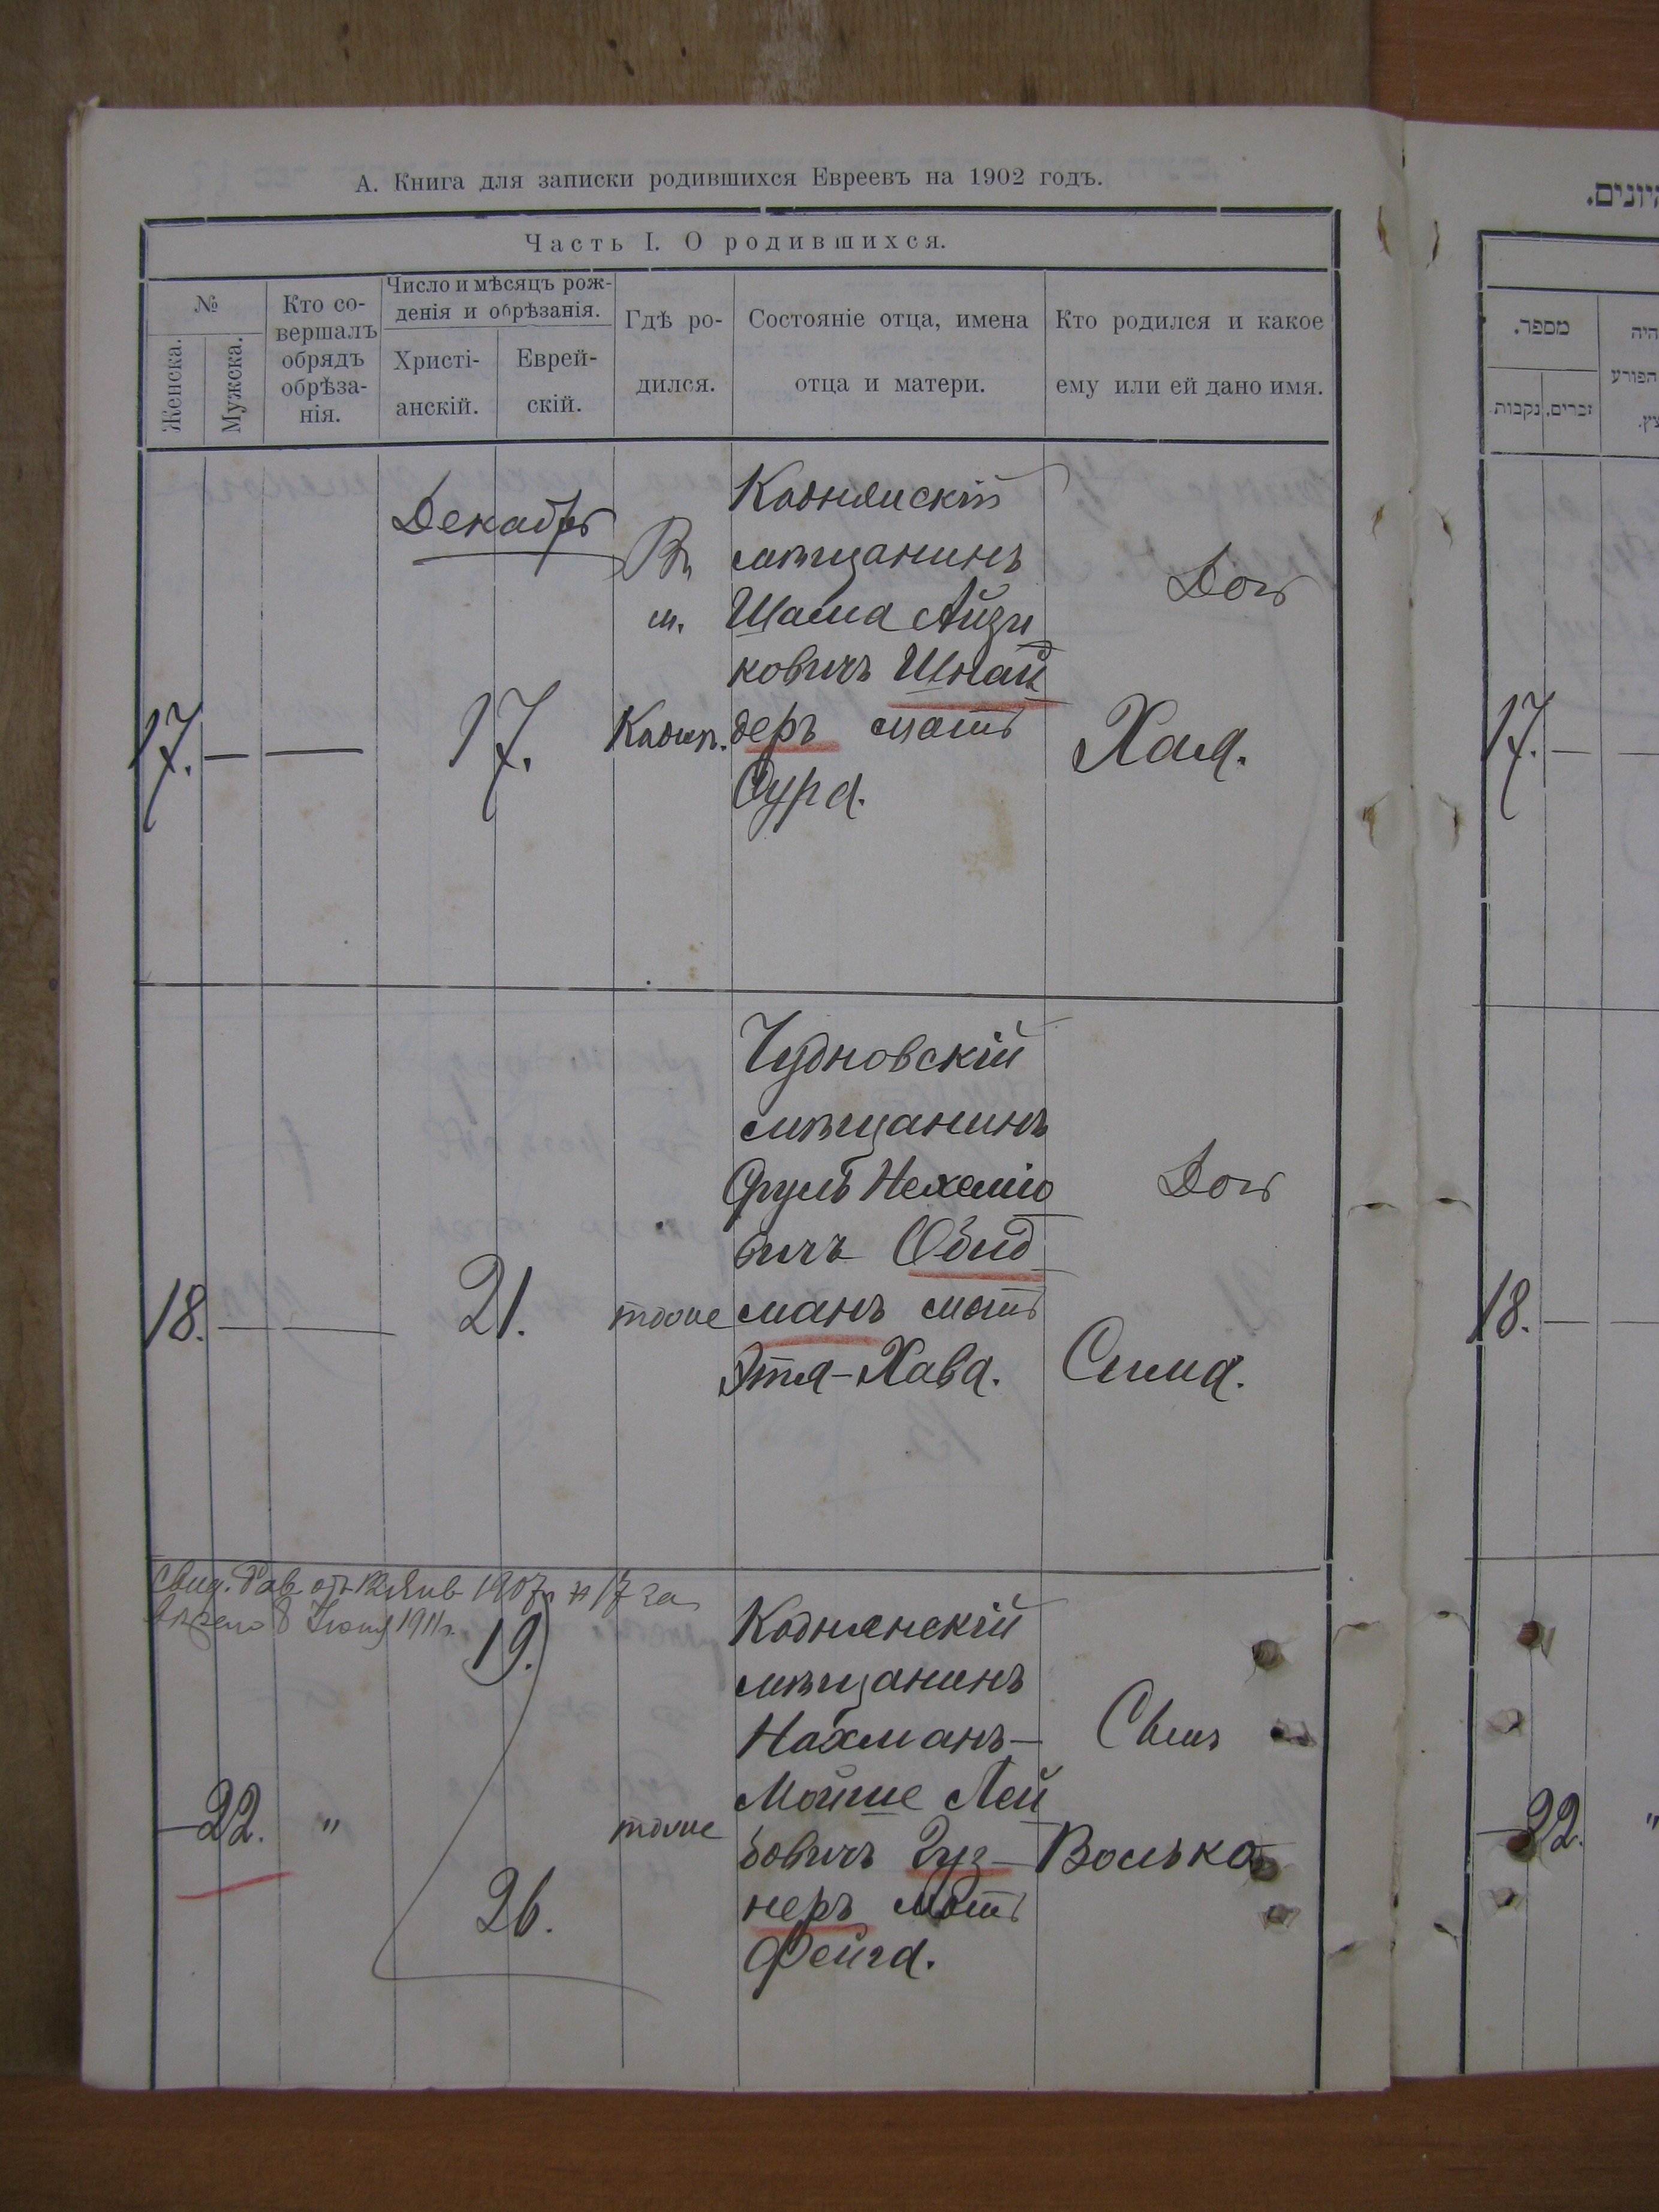 А. Книга для записки родившихся Евреевъ на 1902 годъ.
Часть I. О родившихся.
№
Женска.
Мужска.
Кто со-
вершалъ
обрядъ
обрѣза-
нія.
Число и мѣсяцъ рож-
денія и обрѣзанія.
Христі-
анскій.
Еврей-
скій.
Гдѣ ро-
дился.
Состояніе отца, имена
отца и матери.
Кто родился и какое
ему или ей дано имя.
17.
—
—
Декабрь
17.
Въ
м.
Кодн.
Коднянскій
мѣщанинъ
Шама Айзи
ковичъ Шнай
деръ мать
Сура.
Дочь
Хая.
18.
—
—
21.
тоже
Чудновскій
мѣщанинъ
Сруль Нехеміо
вичъ Обид
манъ мать
Этя-Хава.
Дочь
Сима.
1907 № 17
8 1911г.
—
22.
"
19.
26.
тоже
Коднянскій
мѣщанинъ
Нахманъ-
Мойше Лей
бовичъ Гуз-
неръ мать
Фейга.
Сынъ
Волько
היונים.
מספר.
זכרים.
נקבות
היה
הפורע
17.
—
—
18.
—
—
—
22.
"